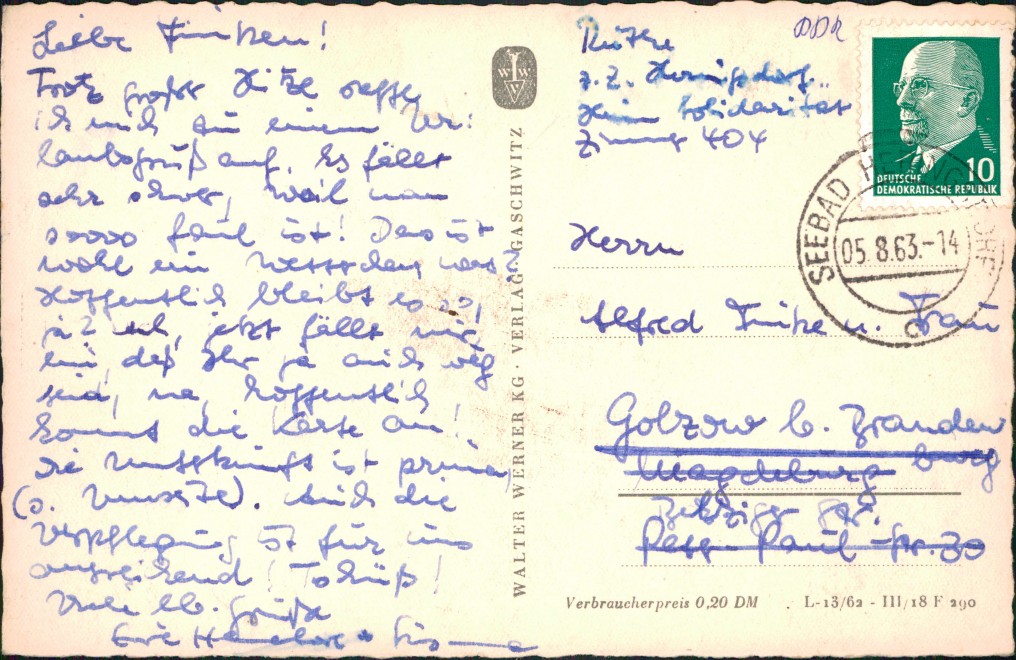 Liebe Finken!
Trotz großer Hitze raffe
ich mich zu einem Ur:
laubsgruß auf. Es fällt
sehr schwer, weil man
soooo faul ist! Das ist
wohl ein Wetterchen was?
Hoffentlich bleibt es so,
ja? ach, jetzt fällt mir
ein, daß Ihr ja auch weg
seid, na, hoffentlich
kommt die Karte an!
Die Unterkunft ist prima,
(s. Umseite). Auch die
Verpflegung ist für uns
ausreichend! Tschüß!
Viele lb. Grüße
Eure Hannelore +
WALTER WERNER KG · VERLAG GASCHWITZ
W W V
DDR
z. Z. Heringsdorf
Heim Solidarität
Zimmer 404
DEUTSCHE
DEMOKRATISCHE REPUBLIK
10
SEEBAD HERINGSDORF
05.8.63.-14
c
Herrn
Alfred Finke u. Frau
Golzow b. Branden
burg
Magdeburg
Belziger Str.
Paul-Str. 30
Verbraucherpreis 0,20 DM . L-13/62 - III/18 F 290